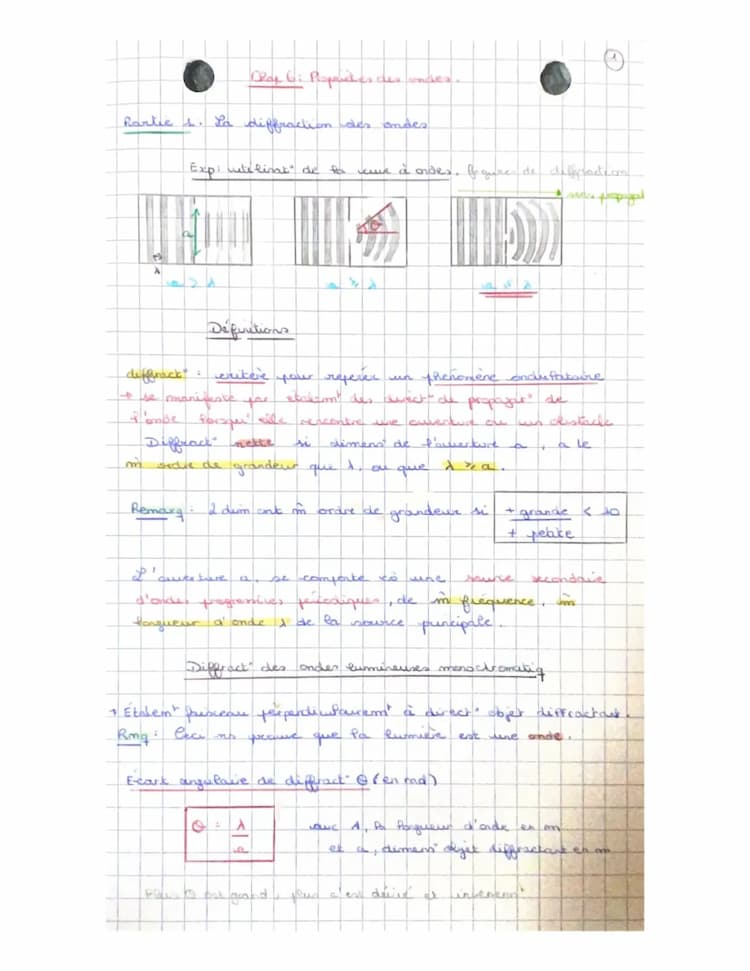 1
Chap 6: Propriétés des ondes.
Partie 1. La diffraction des ondes
Exp: utilisat° de la cuve à ondes. figures de diffraction
sens propagat
a
θ
λ
a > λ
a ≈ λ
Définitions
diffract° : critère pour repérer un phénomène ondulatoire
→ se manifeste par étalemt des direct° de propagat° de
l'onde lorsqu'elle rencontre une ouverture ou un obstacle
Diffract° nette si dimens° de l'ouverture a, a le
m̂ ordre de grandeur que λ, ou que λ ⩾ a.
Remarq : 2 dim ont m̂ ordre de grandeur si + grande / + petite < 10
L'ouverture a, se comporte cô une source secondaire
d'ondes progressives périodiques, de m̂ fréquence, m̂
longueur d'onde λ de la source principale.
Diffract° des ondes lumineuses monochromatiq
→ Étalemt faisceau perpendiculairemt à direct° objet diffractant.
Rmq : Ceci ns prouve que la lumière est une onde.
Écart angulaire de diffract° θ (en rad)
θ = λ / a
avec λ, la longueur d'onde en m
et a, dimens° objet diffractant en m
Plus θ est grand, plus c'est